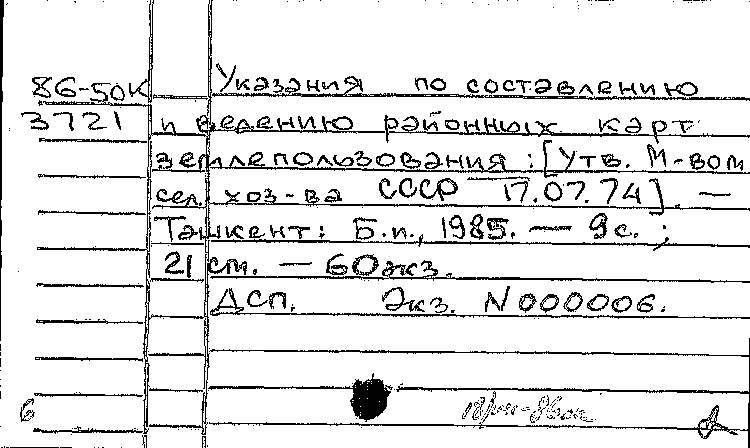 86-50К Указания по составлению
3721 и ведению районных карт
землепользования : [Утв. М-вом
сел. хоз-ва СССР 17.07.74]. —
Ташкент: Б.и., 1985. — 9 с. ;
21 см. — 60 экз.
ДСП. Экз. N 000006.
6